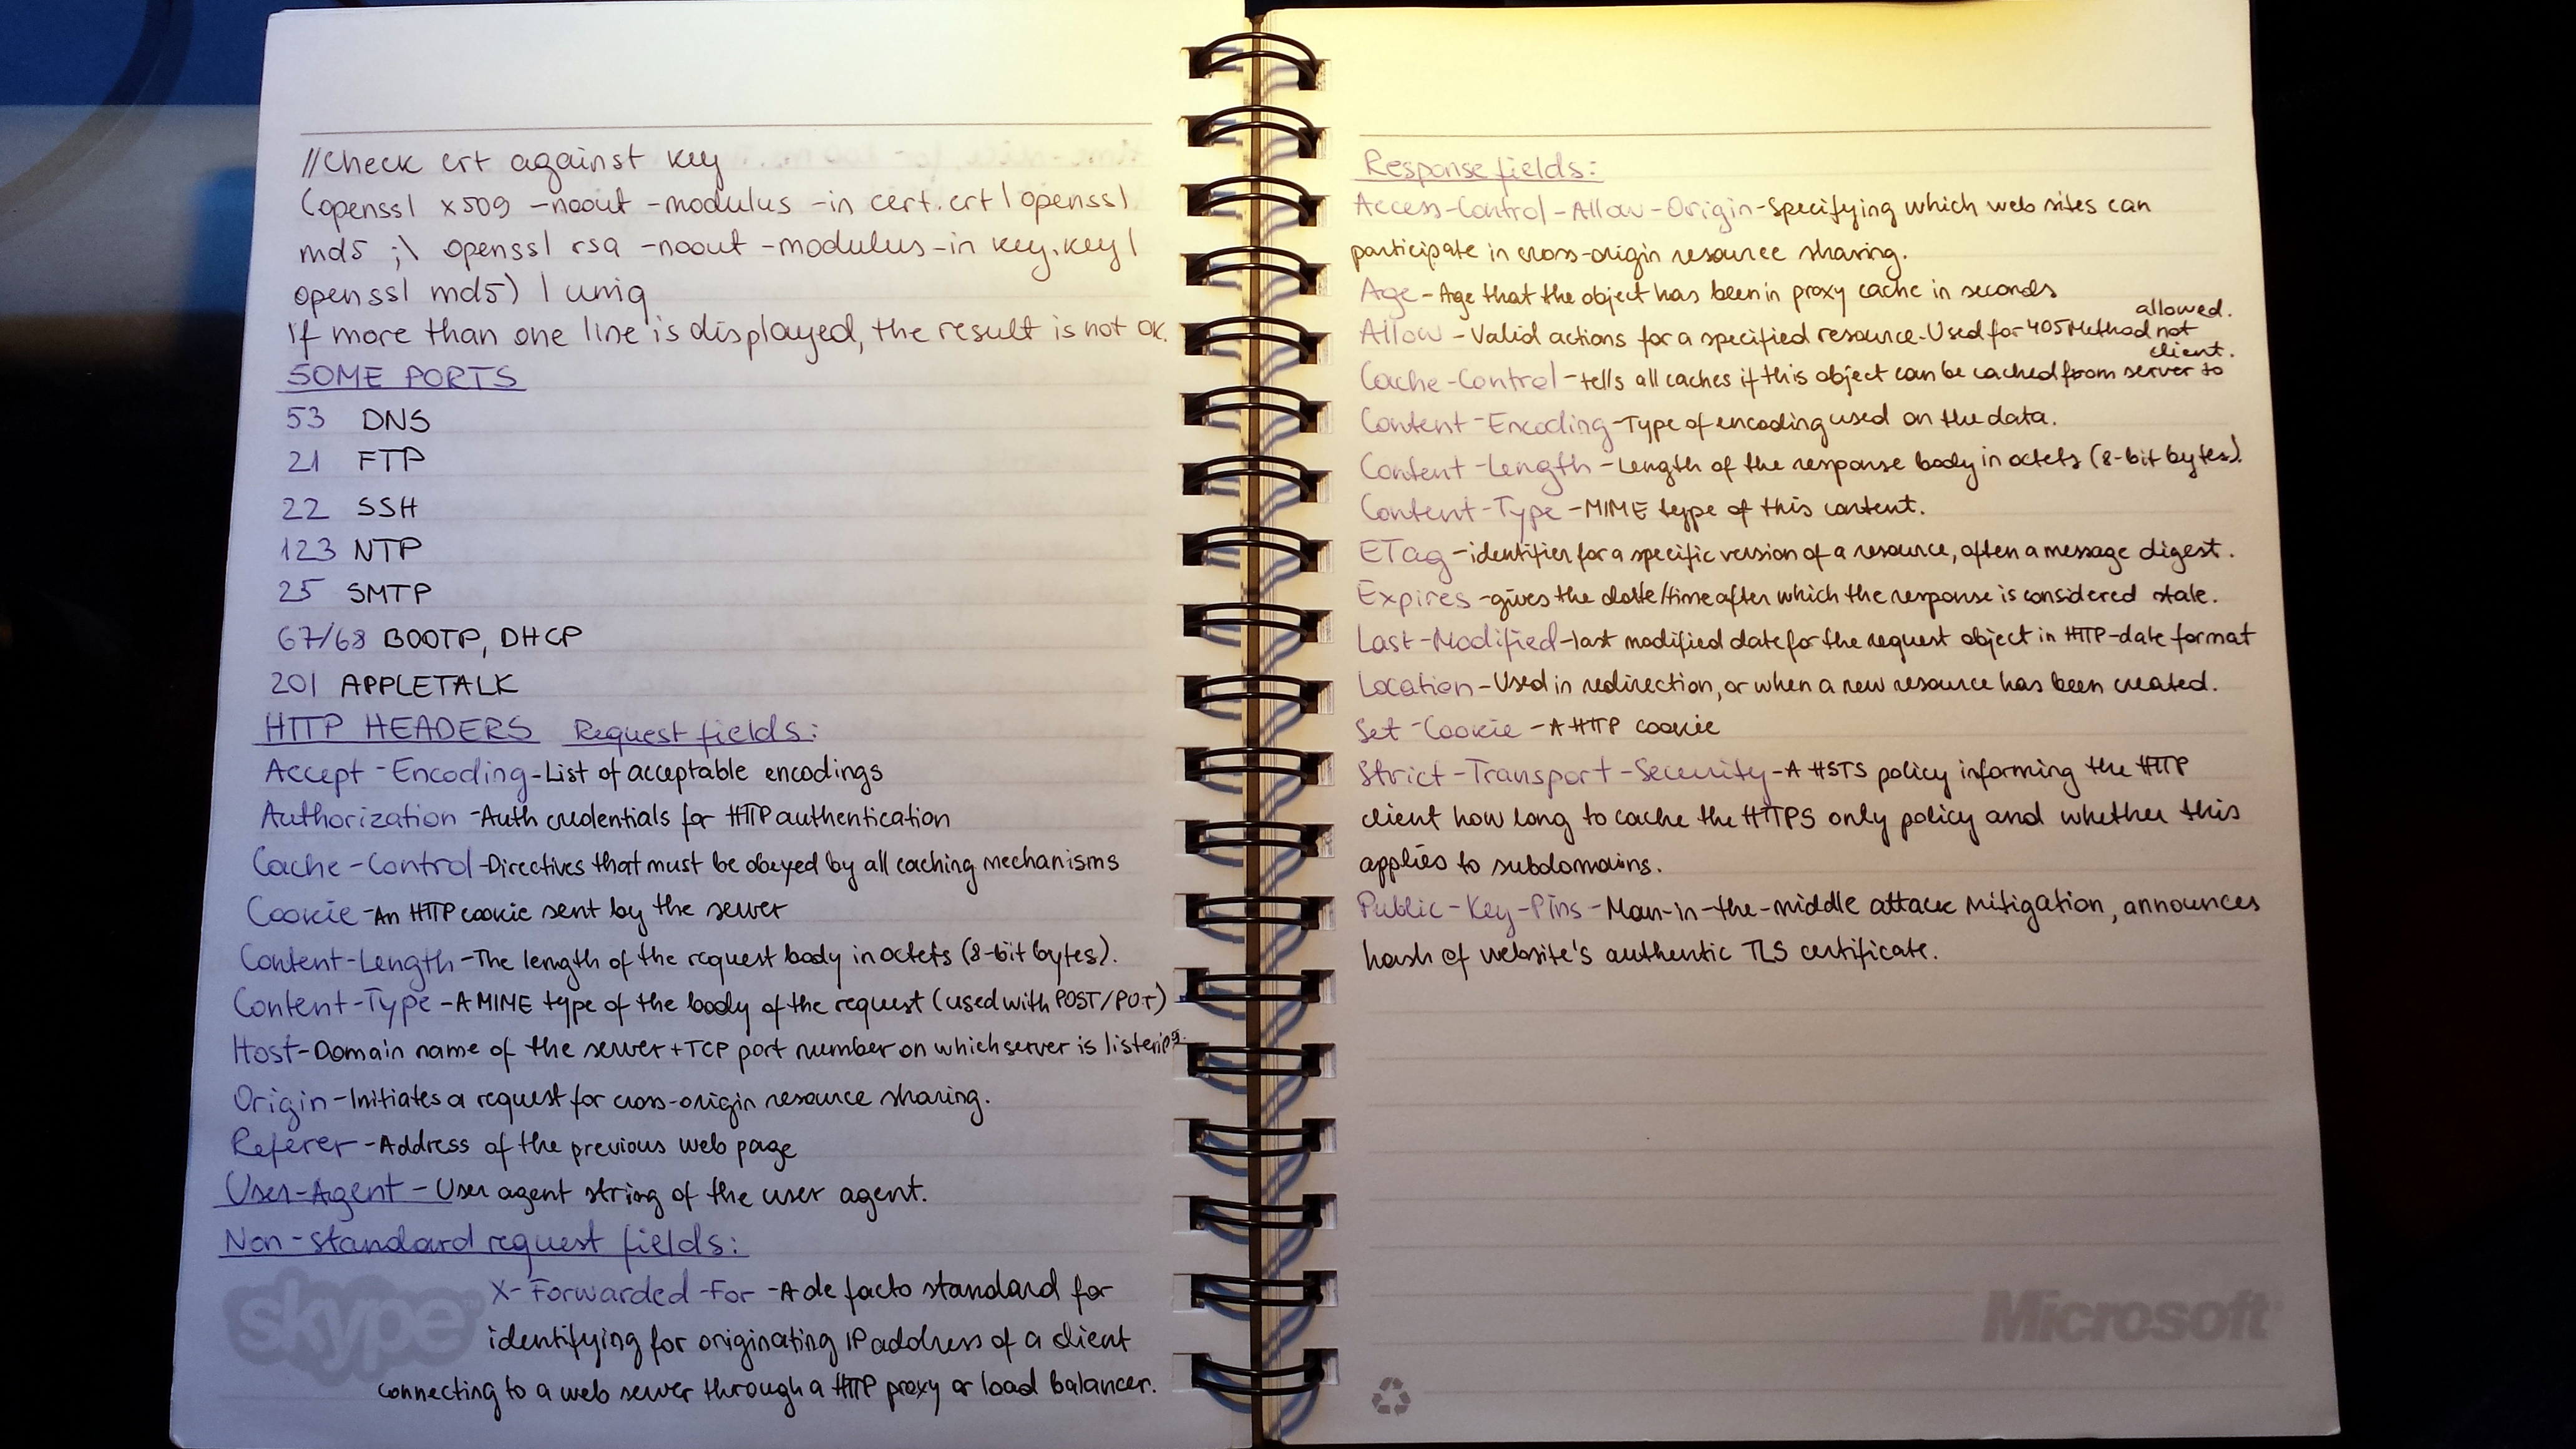 //Check crt against key
(openssl x509 -noout -modulus -in cert.crt | openssl
md5 ;\ openssl rsa -noout -modulus -in key.key |
openssl md5) | uniq
If more than one line is displayed, the result is not ok.
SOME PORTS
53 DNS
21 FTP
22 SSH
123 NTP
25 SMTP
67/68 BOOTP, DHCP
201 APPLETALK
HTTP HEADERS Request fields:
Accept-Encoding - List of acceptable encodings
Authorization - Auth credentials for HTTP authentication
Cache-Control - Directives that must be obeyed by all caching mechanisms
Cookie - An HTTP cookie sent by the server
Content-Length - The length of the request body in octets (8-bit bytes).
Content-Type - A MIME type of the body of the request (used with POST/PUT)
Host - Domain name of the server + TCP port number on which server is listening.
Origin - Initiates a request for cross-origin resource sharing.
Referer - Address of the previous web page
User-Agent - User agent string of the user agent.
Non-standard request fields:
X-Forwarded-For - A de facto standard for
identifying for originating IP address of a client
connecting to a web server through a HTTP proxy or load balancer.
skype™
Response fields:
Access-Control-Allow-Origin - Specifying which web sites can
participate in cross-origin resource sharing.
Age - Age that the object has been in proxy cache in seconds
Allow - Valid actions for a specified resource. Used for 405 Method not
allowed.
Cache-Control - tells all caches if this object can be cached from server to
client.
Content-Encoding - Type of encoding used on the data.
Content-Length - Length of the response body in octets (8-bit bytes).
Content-Type - MIME type of this content.
ETag - identifier for a specific version of a resource, often a message digest.
Expires - gives the date/time after which the response is considered stale.
Last-Modified - last modified date for the request object in HTTP-date format
Location - Used in redirection, or when a new resource has been created.
Set-Cookie - A HTTP cookie
Strict-Transport-Security - A HSTS policy informing the HTTP
client how long to cache the HTTPS only policy and whether this
applies to subdomains.
Public-Key-Pins - Man-in-the-middle attack mitigation, announces
hash of website's authentic TLS certificate.
Microsoft